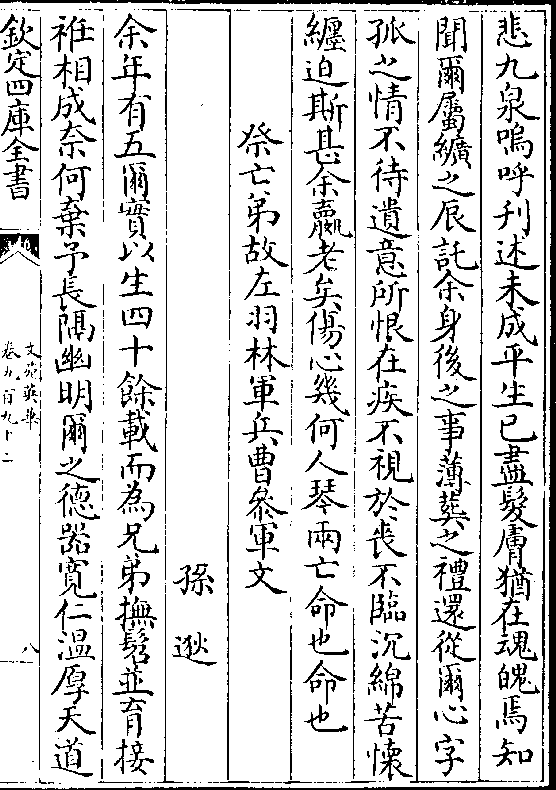 悲九泉嗚呼刋述未成平生已盡髪膚猶在魂魄焉知
聞爾屬纊之辰託余身後之事薄葬之禮還從爾心字
孤之情不待遺意所恨在疾不視於喪不臨沉綿苦懐
纒迫斯甚余羸老矣傷心幾何人琴兩亡命也命也
祭亡弟故左羽林軍兵曹叅軍文
孫逖
余年有五爾實以生四十餘載而為兄弟撫髫並育接
袵相成奈何棄予長隔幽明爾之徳器寛仁温厚天道
欽定四庫全書
文苑英華
卷九百九十二
八